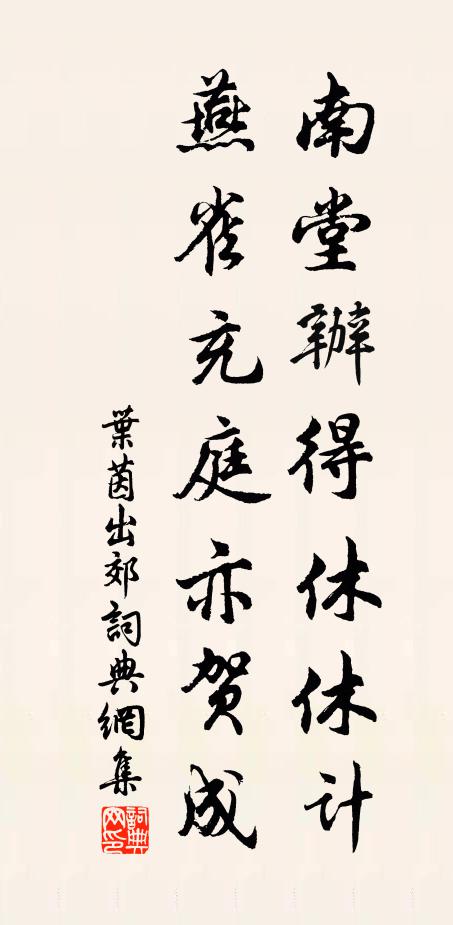 南堂辦得休休計
燕雀充庭亦賀成
葉茵出郊詞典網集
詞典网印